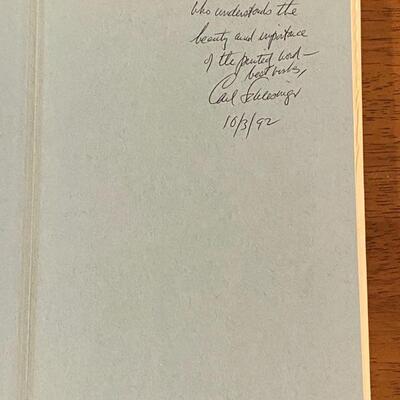 who understands the
beauty and importance
of the printed word —
best wishes,
Carl Schlesinger
10/3/92